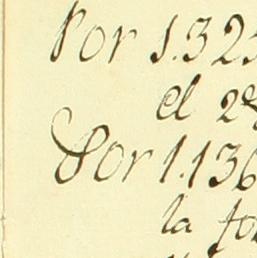 Por 1.323
el 2º
Por 1.136
la